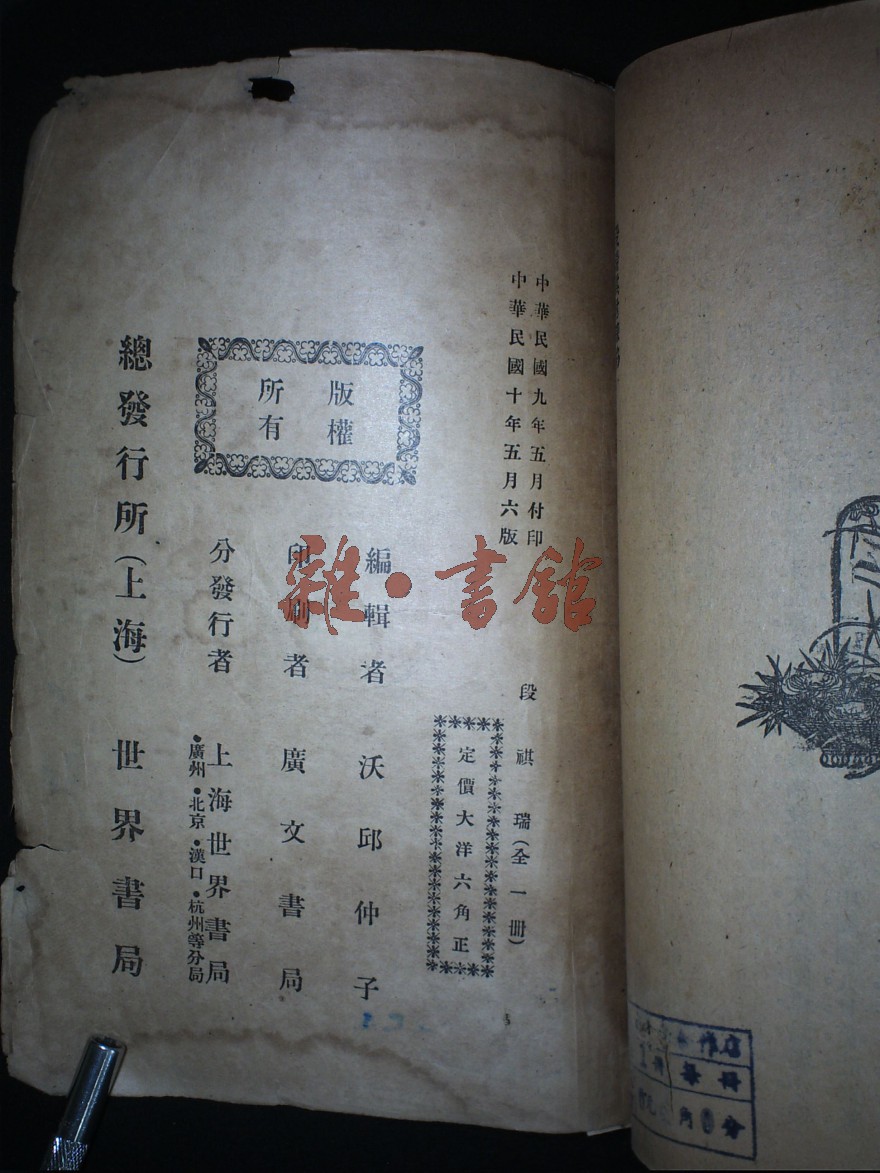 中華民國九年五月付印
中華民國十年五月六版
段祺瑞(全一冊)
定價大洋六角正
版權
所有
編輯者 沃邱仲子
印刷者 廣文書局
分發行者 上海世界書局
•廣州•北京•漢口•杭州等分局
總發行所(上海) 世界書局
雜•書館